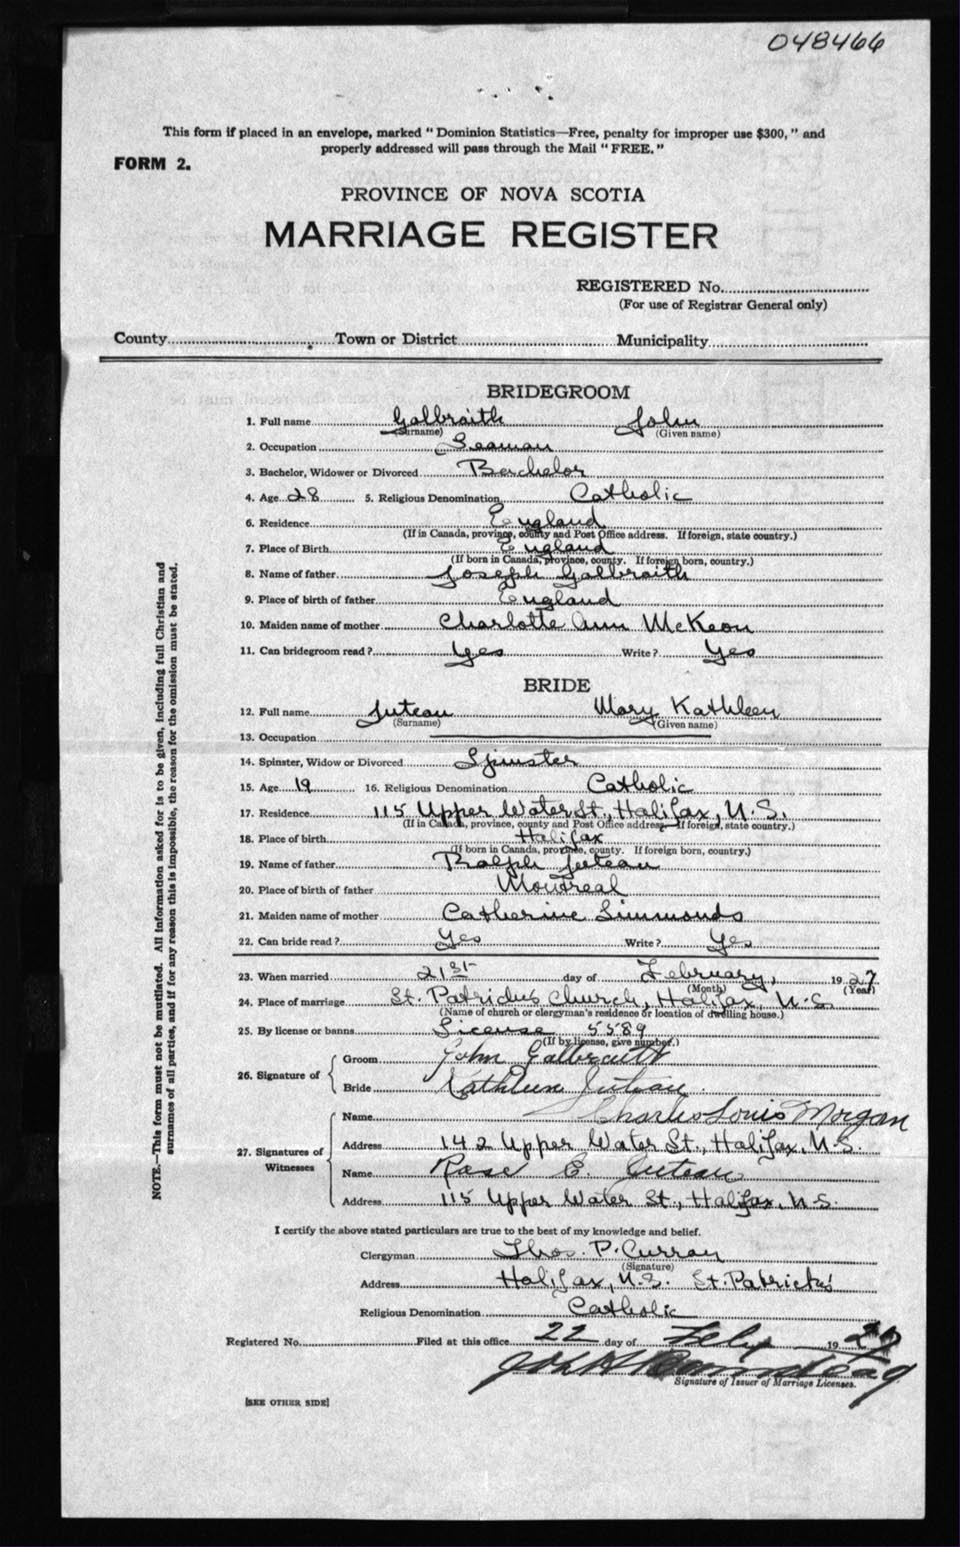 048466
This form if placed in an envelope, marked "Dominion Statistics—Free, penalty for improper use $300," and
properly addressed will pass through the Mail "FREE."
FORM 2.
PROVINCE OF NOVA SCOTIA
MARRIAGE REGISTER
REGISTERED No.
(For use of Registrar General only)
County Town or District Municipality
BRIDEGROOM
1. Full name Galbraith John
(Surname) (Given name)
2. Occupation Seaman
3. Bachelor, Widower or Divorced Bachelor
4. Age 28 5. Religious Denomination Catholic
6. Residence England
(If in Canada, province, county and Post Office address. If foreign, state country.)
7. Place of Birth England
(If born in Canada, province, county. If foreign born, country.)
8. Name of father Joseph Galbraith
9. Place of birth of father England
10. Maiden name of mother Charlotte Ann McKeon
11. Can bridegroom read? Yes Write? Yes
BRIDE
12. Full name Juteau Mary Kathleen
(Surname) (Given name)
13. Occupation
14. Spinster, Widow or Divorced Spinster
15. Age 19 16. Religious Denomination Catholic
17. Residence 115 Upper Water St., Halifax, N.S.
(If in Canada, province, county and Post Office address. If foreign, state country.)
18. Place of birth Halifax
(If born in Canada, province, county. If foreign born, country.)
19. Name of father Ralph Juteau
20. Place of birth of father Montreal
21. Maiden name of mother Catherine Simmonds
22. Can bride read? Yes Write? Yes
23. When married 21st day of February, 1927
(Month) (Year)
24. Place of marriage St. Patrick's Church, Halifax, N.S.
(Name of church or clergyman's residence or location of dwelling house.)
25. By license or banns License 5589
(If by license, give number.)
26. Signature of Groom John Galbraith
Bride Kathleen Juteau
27. Signatures of Witnesses
Name Charles Louis Morgan
Address 142 Upper Water St., Halifax, N.S.
Name Rose E. Juteau
Address 115 Upper Water St., Halifax, N.S.
I certify the above stated particulars are true to the best of my knowledge and belief.
Clergyman Thos. P. Curran
(Signature)
Address Halifax, N.S. St. Patrick's
Religious Denomination Catholic
Registered No. Filed at this office 22 day of Feby 1927
Signature of Issuer of Marriage Licenses.
[SEE OTHER SIDE]
NOTE.—This form must not be mutilated. All information asked for is to be given, including full Christian and
surnames of all parties, and if for any reason this is impossible, the reason for the omission must be stated.